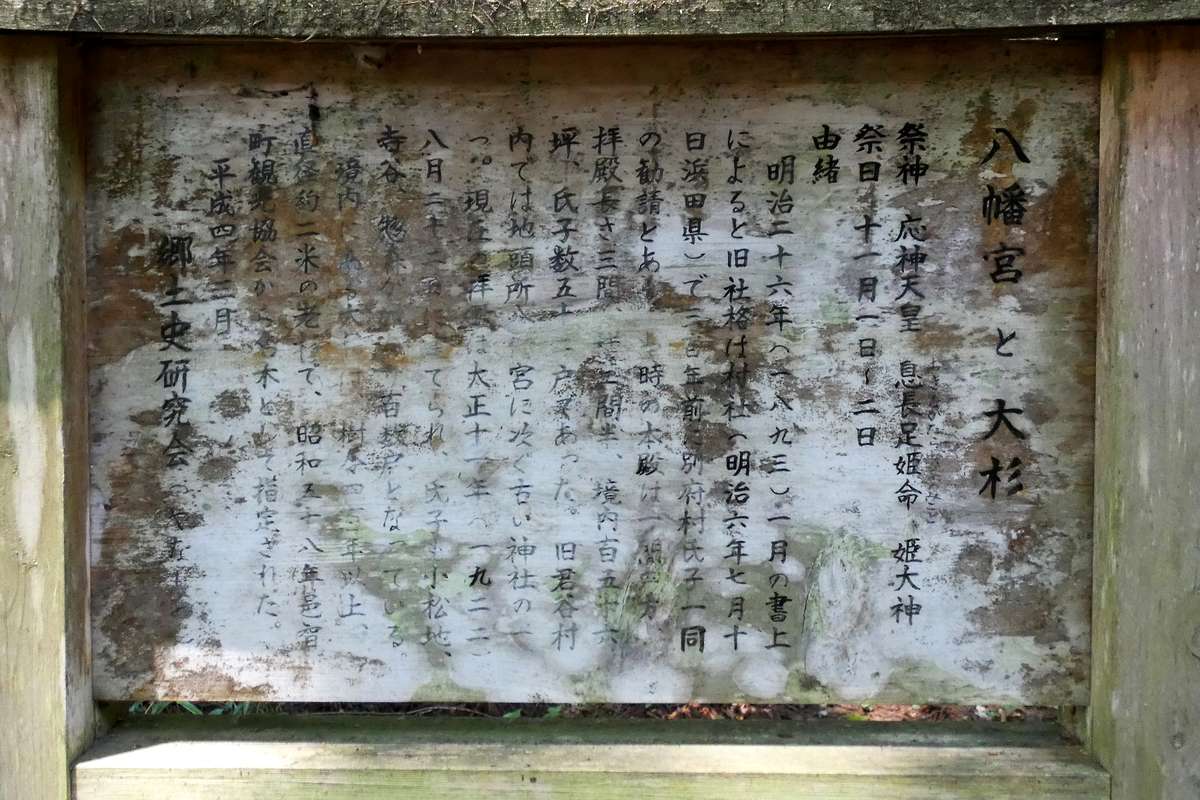 八幡宮と大杉
祭神 応神天皇 息長足姫命 姫大神
祭日 十一月一日～二日
由緒
明治二十六年(一八九三)一月の書上
によると旧社格は村社(明治六年七月十
日浜田県)で 百年前に別府村氏子一同
の勧請とあ 時の本殿は 間 方
拝殿長さ三間、 二間半、境内百五十六
坪、氏子数五十 戸であった。旧君谷村
内では地頭所八 宮に次ぐ古い神社の一
つ。現在の拝 は大正十一年(一九二二)
八月二十二 てられ、氏子は小松地、
寺谷、惣森 百数戸となっている。
境内 大 樹 年以上、
直径約二米の老 で、昭和五十八年邑智
町観光協会から名木として指定された。
平成四年三月
郷土史研究会